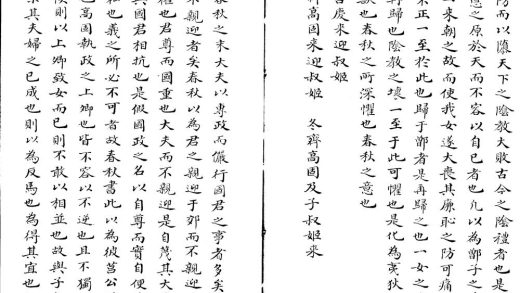 防而以隳天下之陰教大敗古今之陰禮者也是
惡之原於天而不容以自已者也凢以為鄫子之
一來朝之故而使我女遂大喪其亷恥之防可痛
不正一至於此也歸于鄫者是再歸之也一女之
再歸也陰教之壞一至于此可懼也是化為夷狄
獸也春秋之所深懼也春秋之意也
慶來迎叔姬
齊高固來迎叔姬 冬齊高固及子叔姬來
春秋之末大夫以專政而儼行國君之事者多矣
不親迎者矣春秋以為君之親迎于郊而不親迎
權也君尊而國重也大夫而不親迎是自蔑其大
與國君相抗也是假國政之名以自尊而實自便
私也義之所必不可者故春秋書此以為彼莒公
也高固執政之上卿也皆不容以不逆也且不獨
侯則以上卿致女而已則不敢以相並也故與子
示其夫婦之已成也則以為反馬也為得其宜也